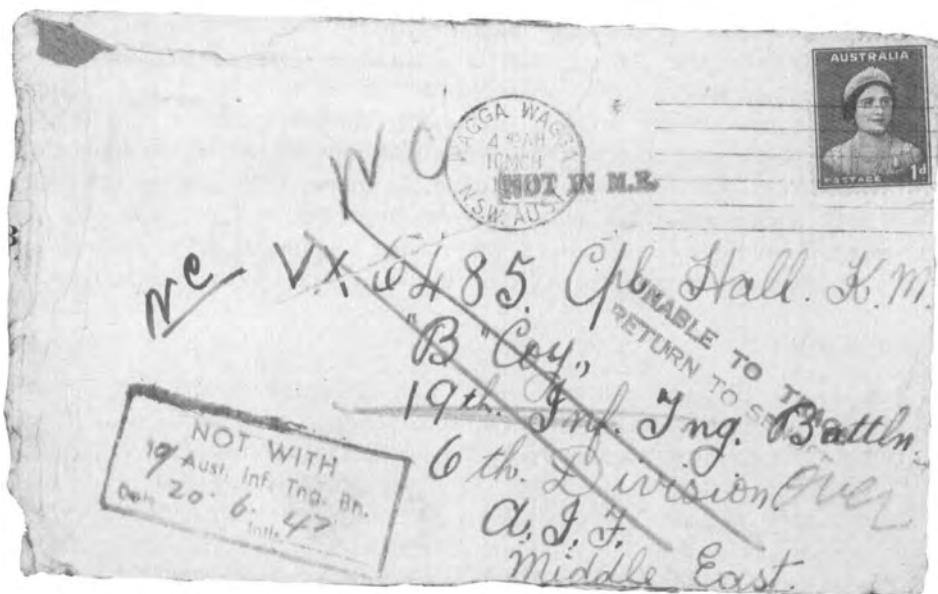 AUSTRALIA
POSTAGE 1d
WAGGA WAGGA
4
10MCH
N.S.W. AUST
NOT IN M.E.
NC
NC
VX 6485. Cpl. Hall. K.M.
"B" Coy.,
19th. Inf. Tng. Battln.
6th. Division
A.I.F.
Middle East.
UNABLE TO TRACE
RETURN TO
Over
NOT WITH
19 Aust. Inf. Tng. Bn.
Date 20. 6. 42
Intls.